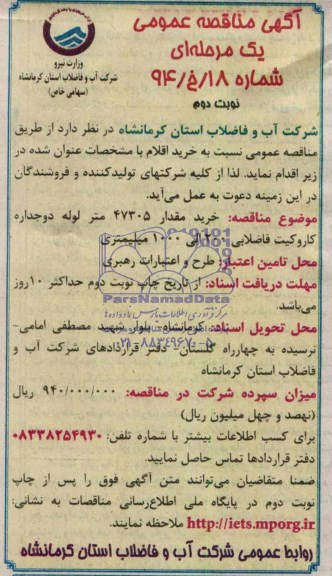 آگهی مناقصه عمومی
یک مرحله‌ای
شماره ۱۸/خ/۹۴
نوبت دوم
وزارت نیرو
شرکت آب و فاضلاب استان کرمانشاه
(سهامی خاص)
شرکت آب و فاضلاب استان کرمانشاه در نظر دارد از طریق
مناقصه عمومی نسبت به خرید اقلام با مشخصات عنوان شده در
زیر اقدام نماید. لذا از کلیه شرکتهای تولیدکننده و فروشندگان
در این زمینه دعوت به عمل می‌آید.
موضوع مناقصه: خرید مقدار ۴۷۳۰۵ متر لوله دوجداره
کاروگیت فاضلابی الی ۱۰۰۰ میلیمتری
محل تامین اعتبار: طرح و اعتبارات رهبری
مهلت دریافت اسناد: از تاریخ چاپ نوبت دوم حداکثر ۱۰روز
می‌باشد.
محل تحویل اسناد: کرمانشاه- بلوار شهید مصطفی امامی-
نرسیده به چهارراه گلستان- دفتر قراردادهای شرکت آب و
فاضلاب استان کرمانشاه
میزان سپرده شرکت در مناقصه: ۹۴۰/۰۰۰/۰۰۰ ریال
(نهصد و چهل میلیون ریال)
برای کسب اطلاعات بیشتر با شماره تلفن: ۰۸۳۳۸۲۵۴۹۳۰
دفتر قراردادها تماس حاصل نمایید.
ضمنا متقاضیان می‌توانند متن آگهی فوق را پس از چاپ
نوبت دوم در پایگاه ملی اطلاع‌رسانی مناقصات به نشانی:
http://iets.mporg.ir ملاحظه نمایند.
روابط عمومی شرکت آب و فاضلاب استان کرمانشاه
ParsNamadData
۰۲۱-۸۸۳۴۹۶۷۰-۵